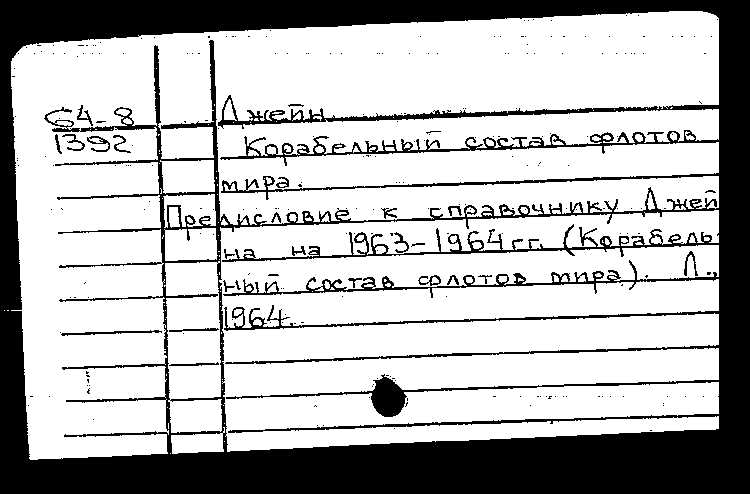 64-8
1392
Джейн
Корабельный состав флотов
мира.
Предисловие к справочнику Джей
на на 1963-1964 гг. (Корабель-
ный состав флотов мира). Л.,
1964.